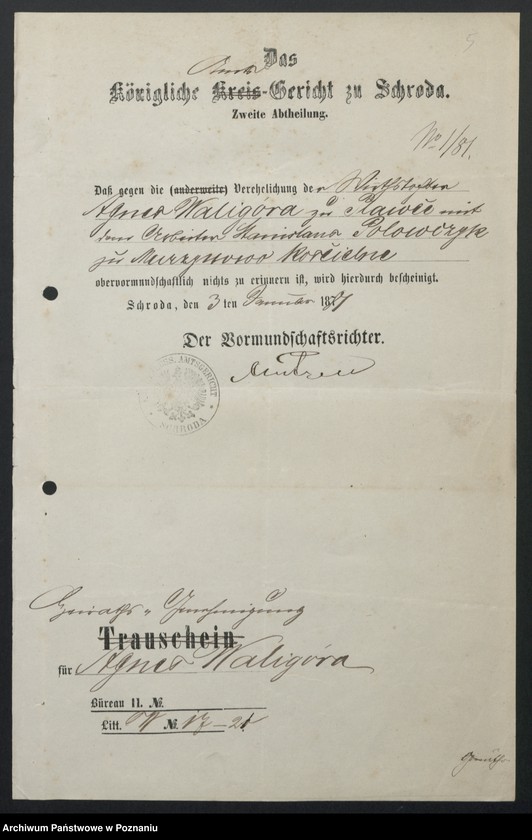 5
Das
Amts
Königliche Kreis-Gericht zu Schroda.
Zweite Abtheilung.
No 1/81.
Daß gegen die (anderweite) Verehelichung der Wirthstochter
Agnes Waligóra zu Pławce mit
dem Arbeiter Stanislaus Polowczyk
zu Murzynowo Kościelne
obervormundschaftlich nichts zu erinnern ist, wird hierdurch bescheinigt.
Schroda, den 3ten Januar 1881
Der Vormundschaftsrichter.
AMTSGERICHT
SCHRODA
Heiraths-Genehmigung
Trauschein
für Agnes Waligóra
Büreau II. №.
Litt. W №. 17-21
Archiwum Państwowe w Poznaniu